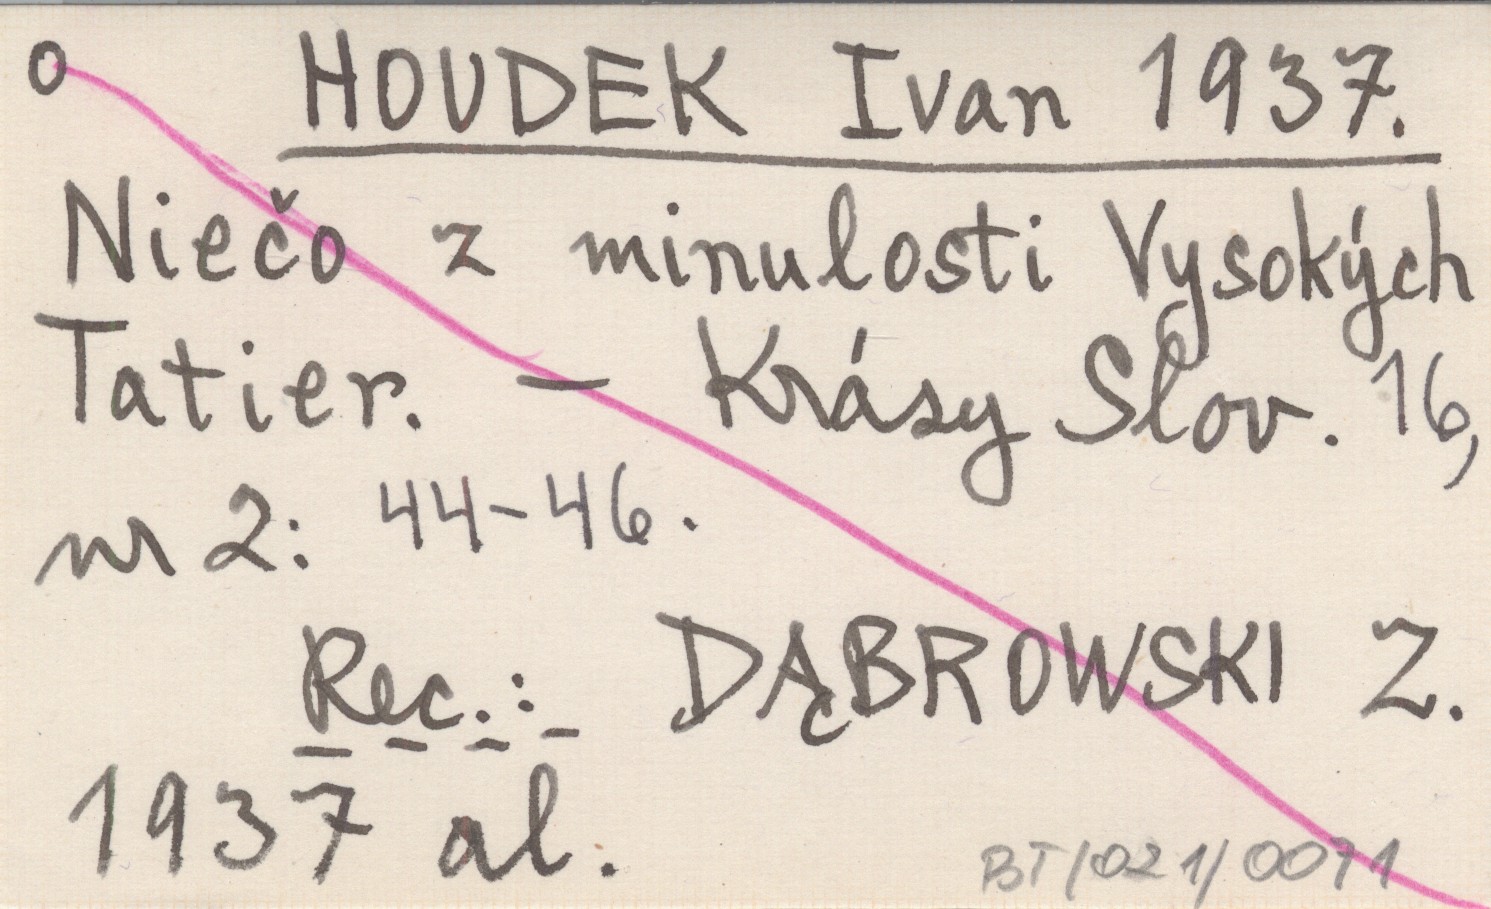 o HOUDEK Ivan 1937.
Niečo z minulosti Vysokých
Tatier. — Krásy Slov. 16,
nr 2: 44-46.
Rec.: DĄBROWSKI Z.
1937 al.
BT/021/0071